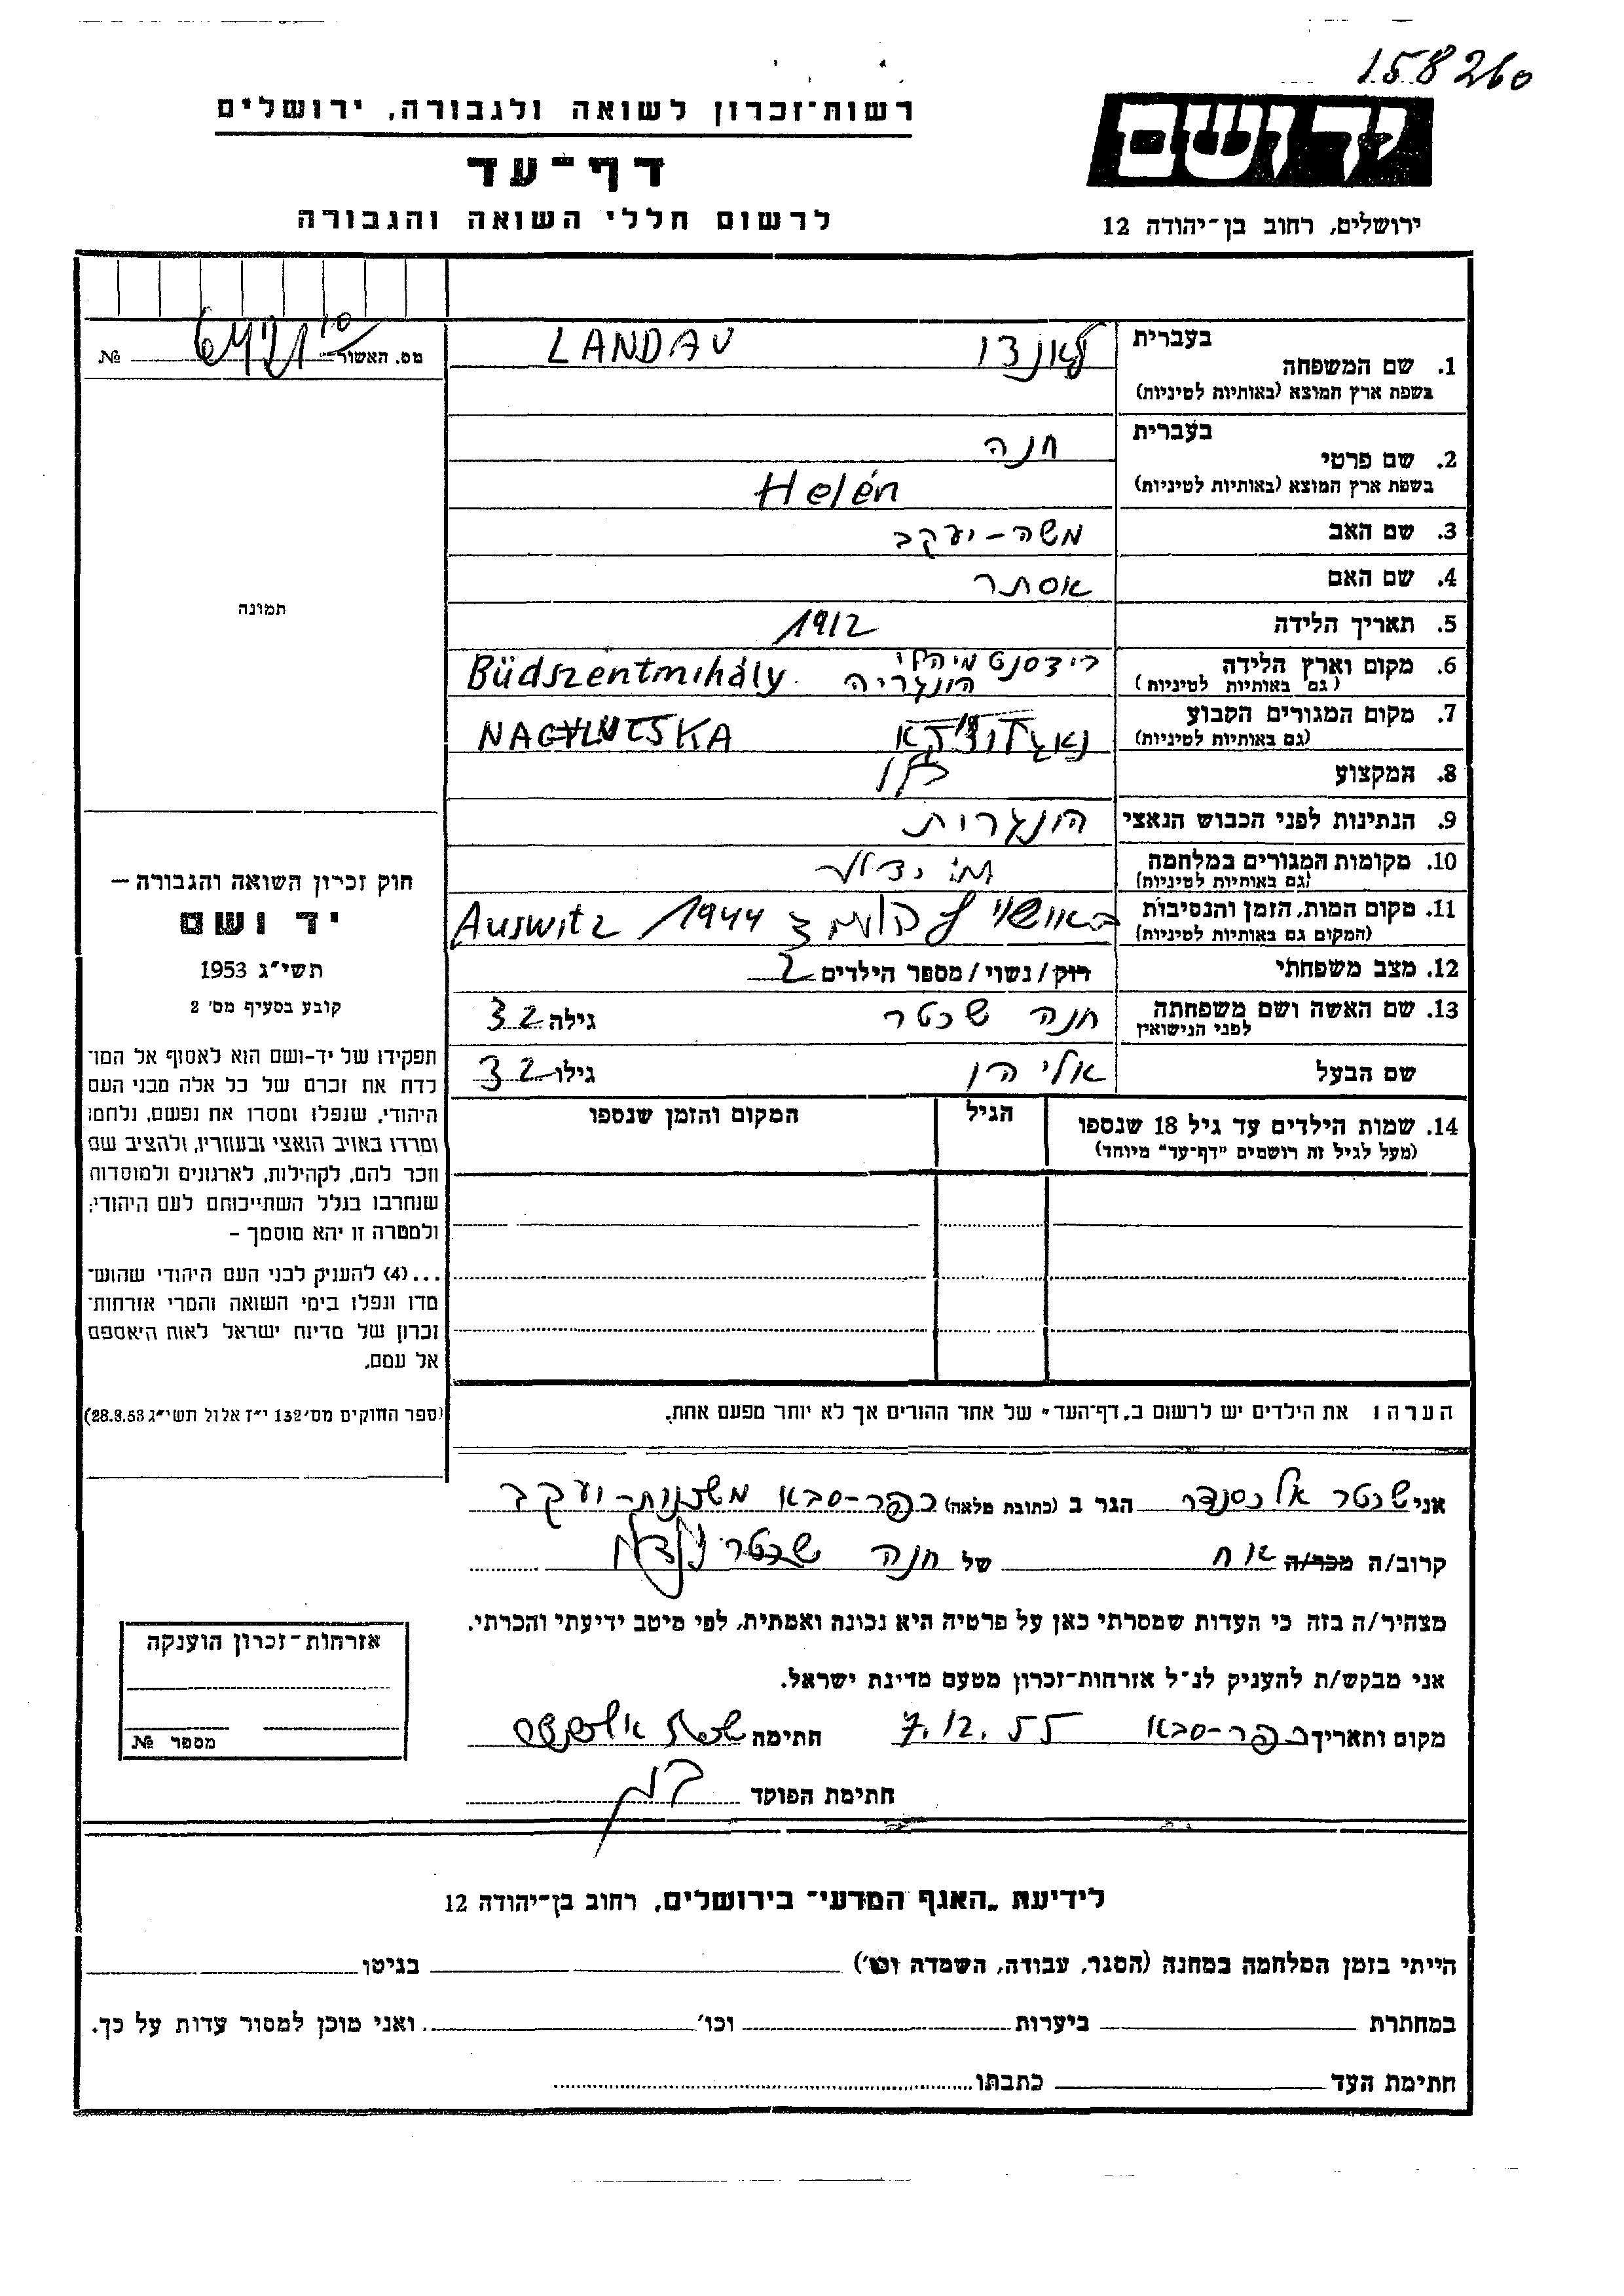 158260
רשות-זכרון לשואה ולגבורה, ירושלים
יד ושם
דף-עד
לרשום חללי השואה והגבורה
ירושלים, רחוב בן-יהודה 12
מס. האשור № 
1. שם המשפחה
בעברית לאנדו LANDAU
בשפת ארץ המוצא (באותיות לטיניות)
2. שם פרטי
בעברית חנה
בשפת ארץ המוצא (באותיות לטיניות) Helén
3. שם האב משה-יעקב
4. שם האם אסתר
5. תאריך הלידה 1912
6. מקום וארץ הלידה (גם באותיות לטיניות) בידסנטמיהלי הונגריה Büdszentmihály
7. מקום המגורים הקבוע (גם באותיות לטיניות) NAGYLUTSKA
8. המקצוע
9. הנתינות לפני הכבוש הנאצי הונגרית
10. מקומות המגורים במלחמה (גם באותיות לטיניות)
11. מקום המות, הזמן והנסיבות (המקום גם באותיות לטיניות) 1944 Auswitz
12. מצב משפחתי רוק/נשוי/מספר הילדים 2
13. שם האשה ושם משפחתה לפני הנישואין חנה שכטר גילה 32
שם הבעל גילו 32
14. שמות הילדים עד גיל 18 שנספו (מעל לגיל זה רושמים "דף-עד" מיוחד)
הגיל
המקום והזמן שנספו
הערה: את הילדים יש לרשום ב"דף-העד" של אחד ההורים אך לא יותר מפעם אחת.
תמונה
חוק זכרון השואה והגבורה –
יד ושם
תשי"ג 1953
קובע בסעיף מס' 2
תפקידו של יד-ושם הוא לאסוף אל המו-
לדת את זכרם של כל אלה מבני העם
היהודי, שנפלו ומסרו את נפשם, נלחמו
ומרדו באויב הנאצי ובעוזריו, ולהציב שם
וזכר להם, לקהילות, לארגונים ולמוסדות
שנחרבו בגלל השתייכותם לעם היהודי;
ולמטרה זו יהא מוסמך –
...(4) להעניק לבני העם היהודי שהוש-
מדו ונפלו בימי השואה והמרי אזרחות-
זכרון של מדינת ישראל לאות היאספם
אל עמם.
(ספר החוקים מס' 132 י"ז אלול תשי"ג 28.8.53)
אני שכטר אלכסנדר הגר ב (כתובת מלאה) כפר-סבא משכנות-יעקב
קרוב/ה מכר/ה אח של חנה שכטר
מצהיר/ה בזה כי העדות שמסרתי כאן על פרטיה היא נכונה ואמתית, לפי מיטב ידיעתי והכרתי.
אני מבקש/ת להעניק לנ"ל אזרחות-זכרון מטעם מדינת ישראל.
מקום ותאריך כפר-סבא 7.12.55 חתימה
חתימת הפוקד
אזרחות-זכרון הוענקה
מספר №
לידיעת "האגף המדעי" בירושלים, רחוב בן-יהודה 12
הייתי בזמן המלחמה במחנה (הסגר, עבודה, השמדה וכו') בגיטו
במחתרת ביערות וכו' ואני מוכן למסור עדות על כך.
חתימת העד כתבתו